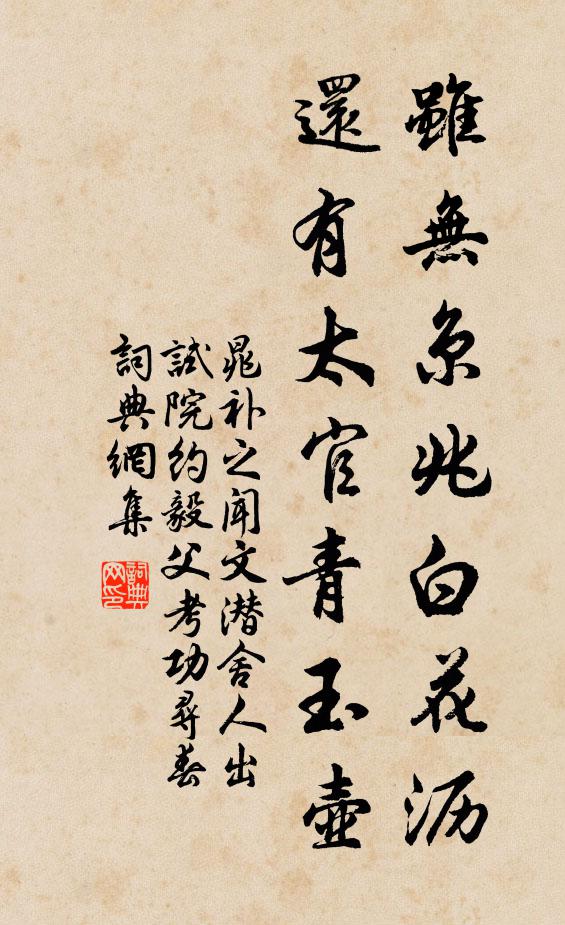 雖無京兆白花沥
還有太官青玉壺
晁补之闻文潜舍人出
試院约毅父考功尋春
詞典網集
詞典网印